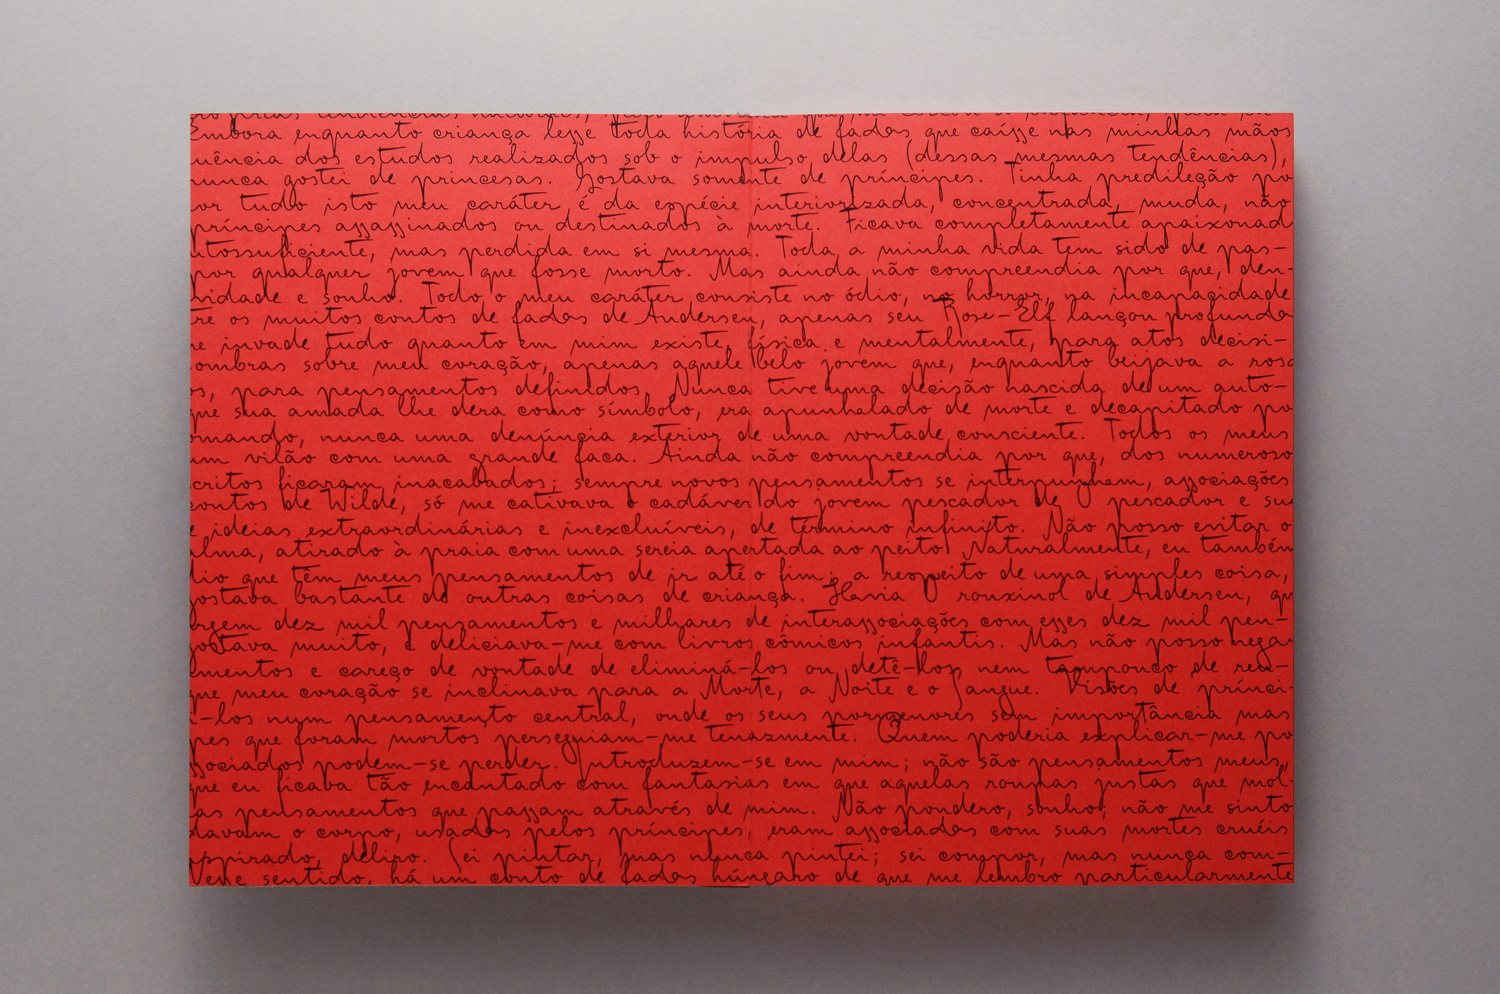 Embora enquanto criança lesse toda história de fadas que caísse nas minhas mãos
uência dos estudos realizados sob o impulso delas (dessas mesmas tendências),
nunca gostei de princesas. Gostava somente de príncipes. Tinha predileção po
or tudo isto meu caráter é da espécie interiorizada, concentrada, muda, não
príncipes assassinados ou destinados à morte. Ficava completamente apaixonad
utossuficiente, mas perdida em si mesma. Toda a minha vida tem sido de pas-
por qualquer jovem que fosse morto. Mas ainda não compreendia por que, den-
vidade e sonho. Todo o meu caráter consiste no ódio, no horror, na incapacidade
tre os muitos contos de fadas de Andersen, apenas seu Rose-Elf lançou profunda
e invade tudo quanto em mim existe, física e mentalmente, para atos decisi-
ombras sobre meu coração, apenas aquele belo jovem que, enquanto beijava a rosa
os, para pensamentos definidos. Nunca tive uma decisão nascida de um auto-
que sua amada lhe dera como símbolo, era apunhalado de morte e decapitado po
omando, nunca uma denúncia exterior de uma vontade consciente. Todos os meus
um vilão com uma grande faca. Ainda não compreendia por que, dos numeroso
critos ficaram inacabados; sempre novos pensamentos se interpunham, associações
contos de Wilde, só me cativava o cadáver do jovem pescador de pescador e su
e ideias extraordinárias e inexcluíveis, de término infinito. Não posso evitar o
alma, atirado à praia com uma sereia apertada ao peito. Naturalmente, eu também
dio que têm meus pensamentos de ir até o fim; a respeito de uma simples coisa,
gostava bastante de outras coisas de criança. Havia O rouxinol de Andersen, qu
urgem dez mil pensamentos e milhares de interassociações com esses dez mil pen-
gostava muito, e deliciava-me com livros cômicos infantis. Mas não posso negar
amentos e careço de vontade de eliminá-los ou detê-los, nem tampouco de reu-
que meu coração se inclinava para a Morte, a Noite e o Sangue. Visões de prínci-
i-los num pensamento central, onde os seus pormenores sem importância mas
pes que foram mortos perseguiam-me tenazmente. Quem poderia explicar-me po
ssociados podem-se perder. Introduzem-se em mim; não são pensamentos meus,
que eu ficava tão encantado com fantasias em que aquelas roupas justas que mol-
as pensamentos que passam através de mim. Não pondero, sonho; não me sinto
davam o corpo, usadas pelos príncipes, eram associadas com suas mortes cruéis
nspirado, deliro. Sei pintar, mas nunca pintei; sei compor, mas nunca com-
Nesse sentido, há um conto de fadas húngaro de que me lembro particularmente